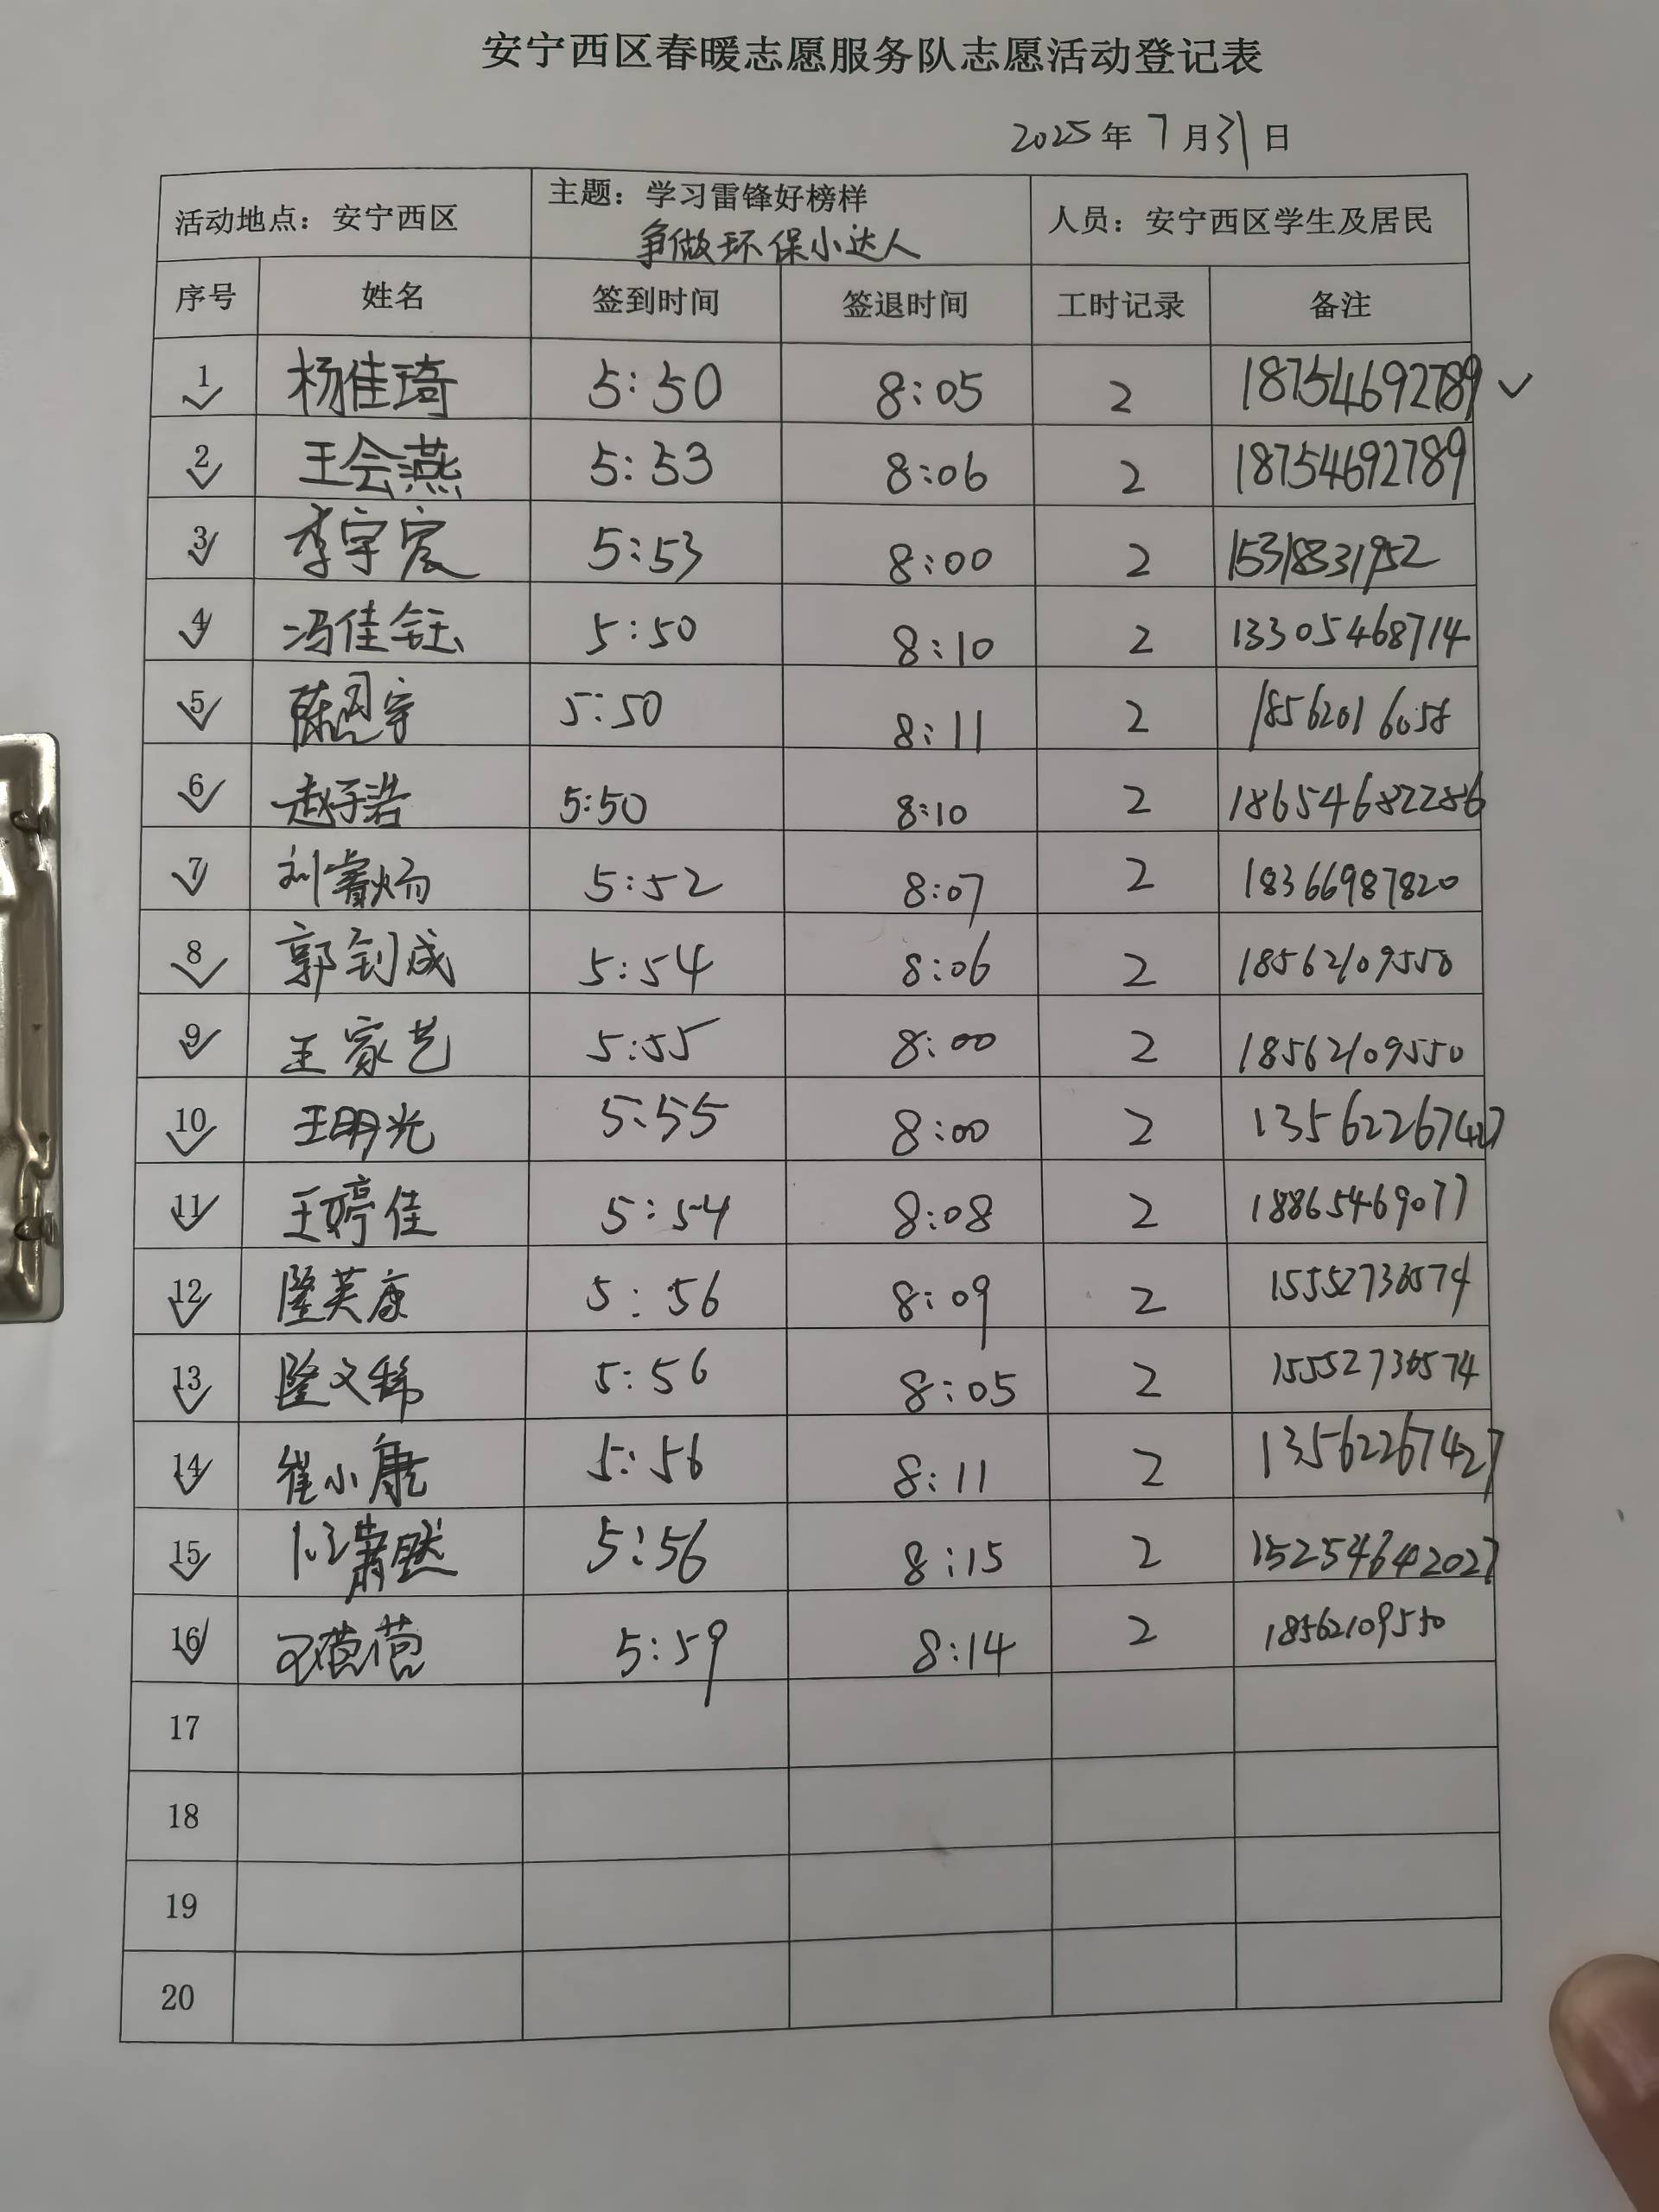 安宁西区春暖志愿服务队志愿活动登记表
2025年7月31日
活动地点：安宁西区 主题：学习雷锋好榜样 人员：安宁西区学生及居民
争做环保小达人
序号 姓名 签到时间 签退时间 工时记录 备注
1 杨佳琦 5:50 8:05 2 18754692789
2 王会燕 5:53 8:06 2 18754692789
3 李宇宸 5:53 8:00 2 15318331952
4 冯佳钰 5:50 8:10 2 13305468714
5 5:50 8:11 2 18562016058
6 赵子诺 5:50 8:10 2 18654682286
7 刘睿炀 5:52 8:07 2 18366987820
8 郭钊成 5:54 8:06 2 18562109550
9 王家艺 5:55 8:00 2 18562109550
10 王明光 5:55 8:00 2 13562267427
11 王婷佳 5:54 8:08 2 18865469077
12 隆英康 5:56 8:09 2 15552736574
13 隆文稀 5:56 8:05 2 15552736574
14 崔小康 5:56 8:11 2 13562267427
15 5:56 8:15 2 15254642027
16 5:59 8:14 2 18562109550
17
18
19
20